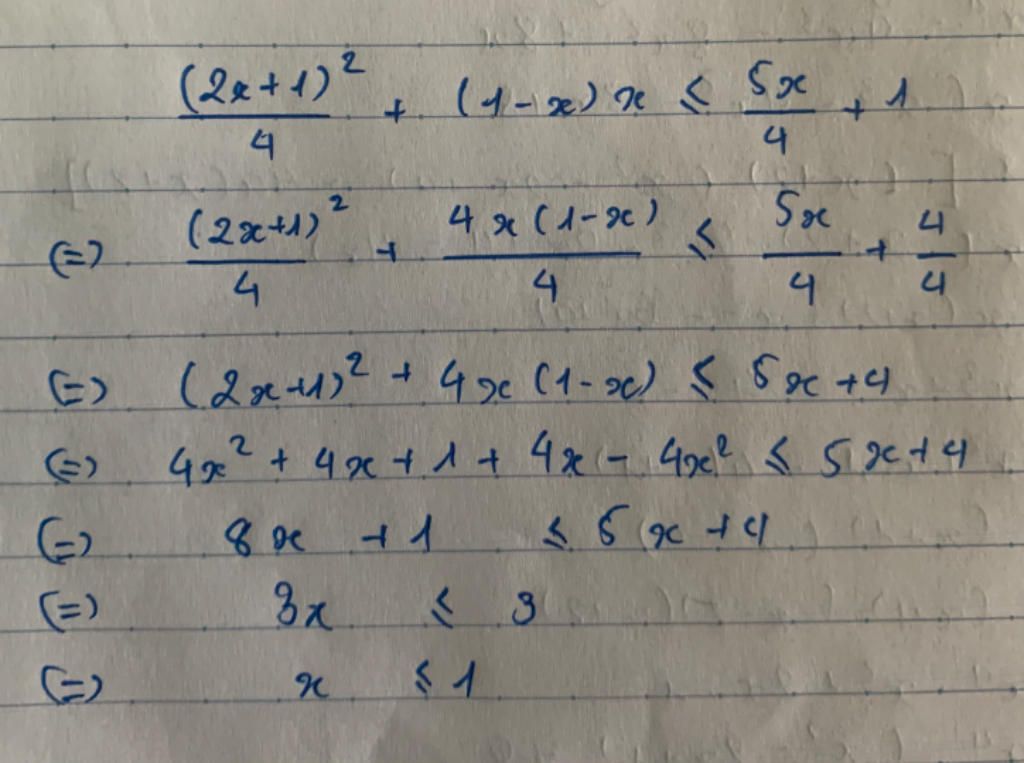 (2x+1)²/4 + (1-x)x ≤ 5x/4 + 1
(=) (2x+1)²/4 + 4x(1-x)/4 ≤ 5x/4 + 4/4
(=) (2x+1)² + 4x(1-x) ≤ 5x+4
(=) 4x² + 4x + 1 + 4x - 4x² ≤ 5x+4
(=) 8x + 1 ≤ 5x + 4
(=) 3x ≤ 3
(=) x ≤ 1